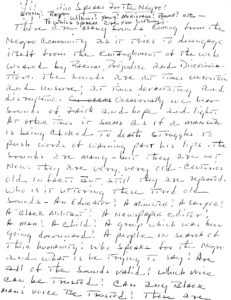 Who Speaks for the Negro!
Wilkins! Young! Muslims! Panel! etc —
To which speaker are you listening
There are many sounds coming from the
Negro Community as it tries to disengage
itself from the entrapment of the web
weaved by Racial Prejudice and Discrimina-
tion. The sounds are at times uncertain
and unsure, at times devastating and
disruptive. Occasionally we hear
sounds of faith and hope and light.
At other times it seems as if a man who
is being choked to death struggles to
push words of warning past his lips. The
sounds are many — but they are not
new. They are very, very old — centuries
old in fact. But still they are repeated.
Who is it uttering these tired old
sounds — An Educator! A Minister! A Lawyer!
A Black Militant! A Newspaper editor!
A man! A child! A group which was born
going downward! A people in search of
their humanity! Who speaks for the Negro
and what is he trying to say! Are
all of the sounds valid! Which voice
can be trusted! Can any Black
man's voice be trusted! These are